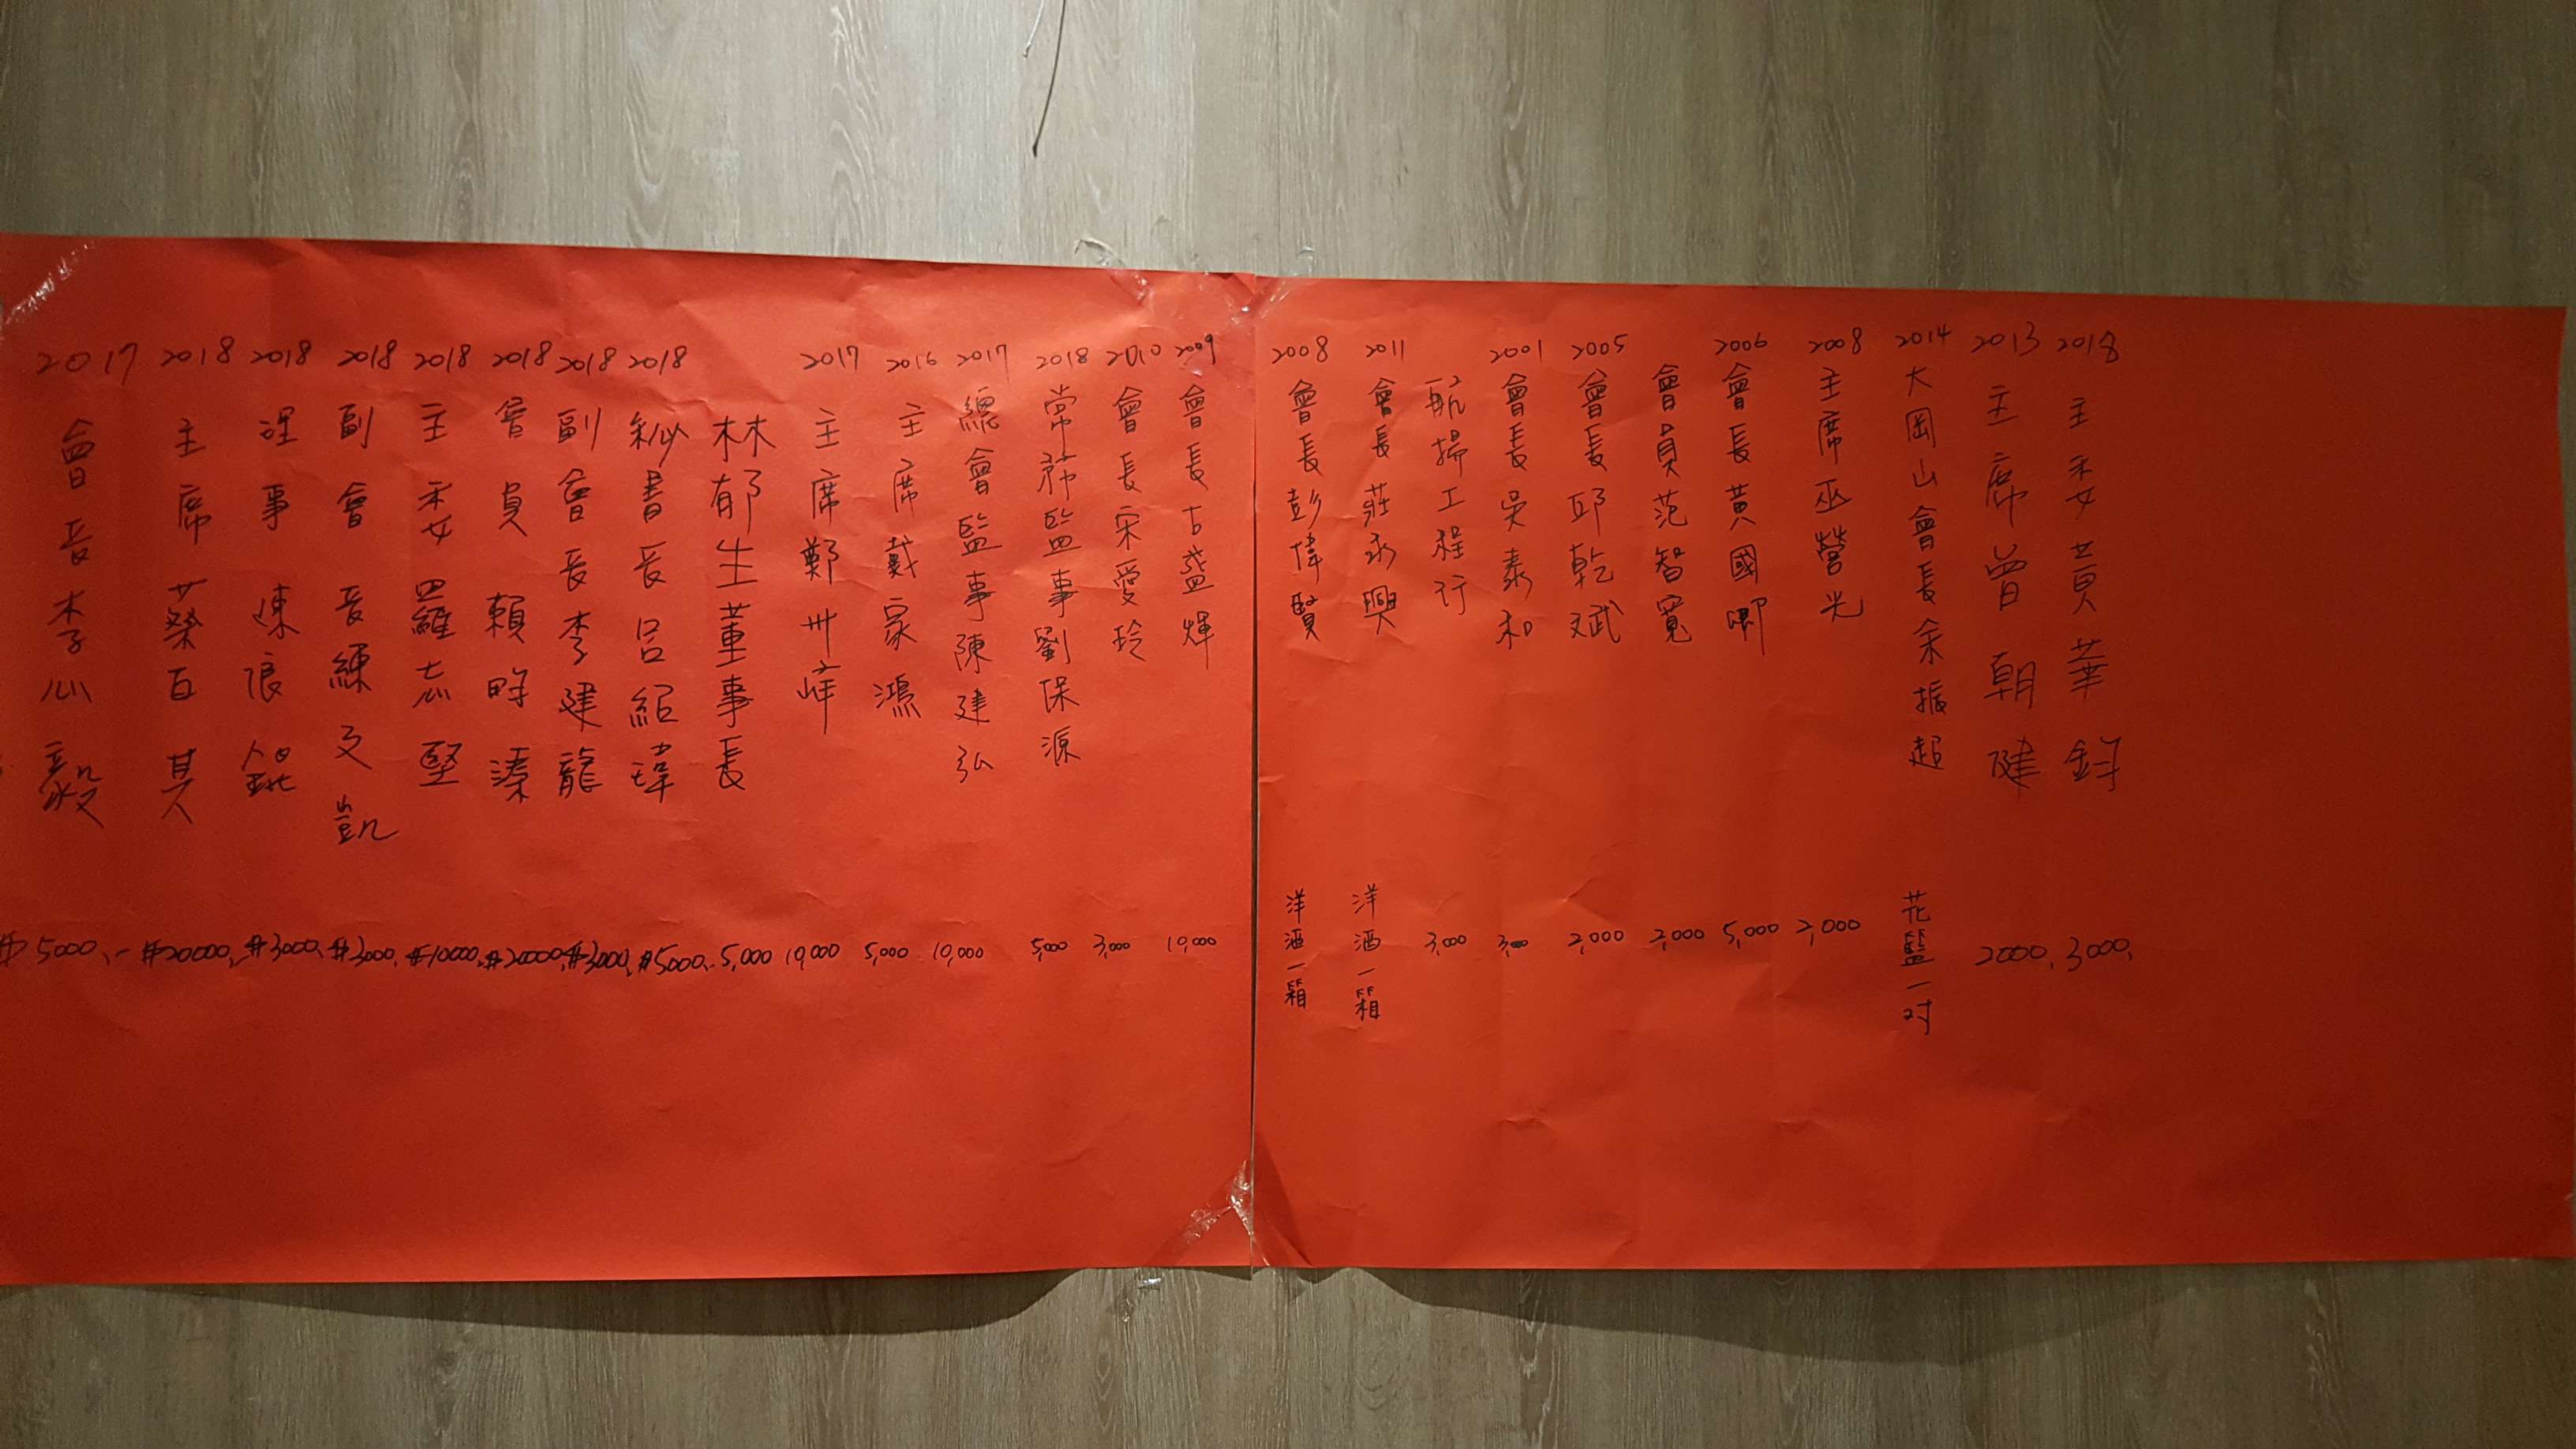 2017 會長李心毅 $5000.-
2018 主席蔡百其 $20000.
2018 理事陳俍銘 $3000.
2018 副會長練文凱 $3000.
2018 主委羅志堅 $10000.
2018 會員賴時溱 $20000.
2018 副會長李建龍 $3000.
2018 秘書長呂紹瑋 $5000.-
林郁生董事長 5,000
2017 主席鄭卅峰 10,000
2016 主席戴家鴻 5,000
2017 總會監事陳建弘 10,000
2018 常務監事劉保源 5,000
2010 會長宋愛玲 3,000
2009 會長古盛煇 10,000
2008 會長彭偉賢 洋酒一箱
2011 會長莊永興 洋酒一箱
航揚工程行 3,000
2001 會長吳泰和 3,000
2005 會長邱乾斌 2,000
會員范智寬 2,000
2006 會長黃國卿 5,000
2008 主席巫營光 2,000
2014 大岡山會長余振超 花籃一對
2013 主席曾朝健 2000.
2018 主委黃華鈞 3000.